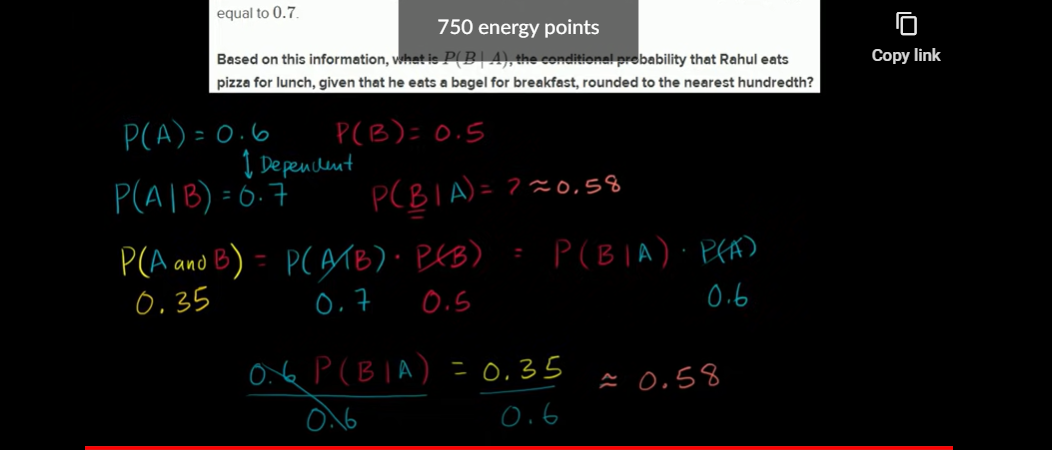 equal to 0.7.
750 energy points
Copy link
Based on this information, what is P(B | A), the conditional probability that Rahul eats
pizza for lunch, given that he eats a bagel for breakfast, rounded to the nearest hundredth?
P(A) = 0.6 P(B) = 0.5
↕ Dependent
P(A|B) = 0.7 P(B|A) = ? ≈ 0.58
P(A and B) = P(A|B) · P(B) = P(B|A) · P(A)
0.35 0.7 0.5 0.6
0.6 P(B|A) = 0.35 ≈ 0.58
0.6 0.6